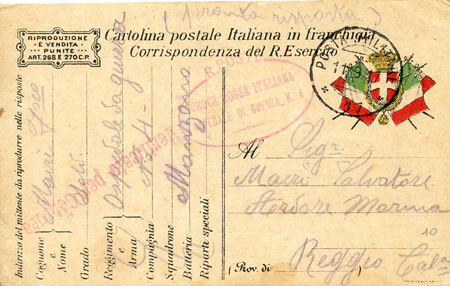 RIPRODUZIONE
E VENDITA
PUNITE
ART. 268 E 270 C.P.
(pronta risposta)
Cartolina postale Italiana in franchigia
Corrispondenza del R. Esercito
R. POSTE
CROCE ROSSA ITALIANA
DI GUERRA, N. 4
POSTA MIL
Indirizzo del mittente da riprodurre nelle risposte
Cognome e Nome Macri
Grado Sold.
Reggimento e Arma Ospedale da guerra
Compagnia N. 4
Squadrone Manzano
Batteria
Riparti speciali
Al Sigr.
Macri Salvatore
Ardore Marina
10
(Prov. di Reggio Cala